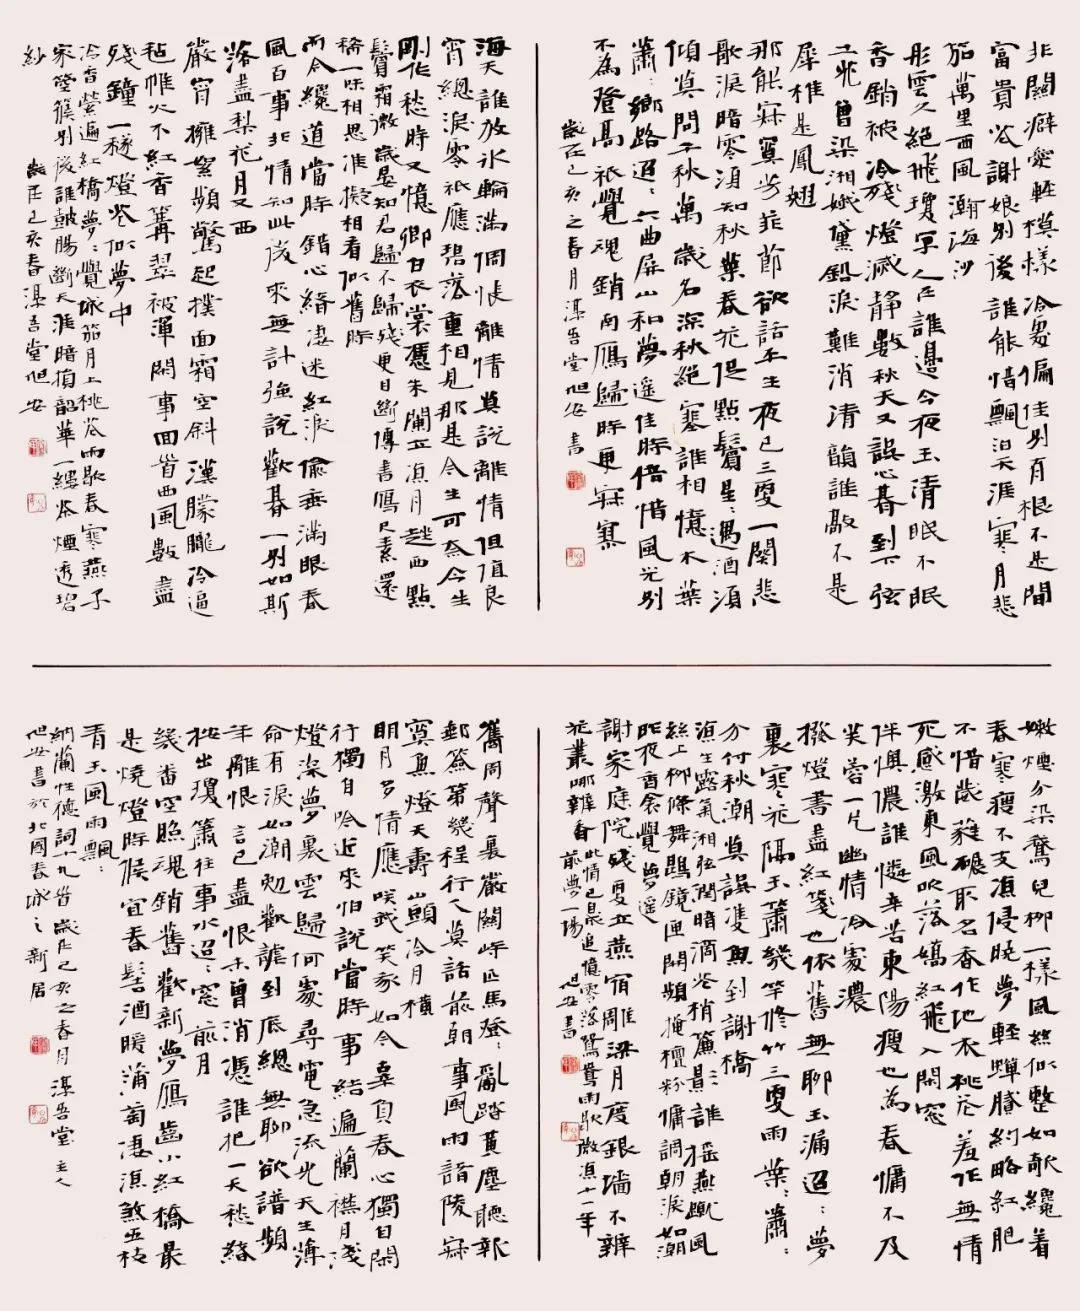 非關癖愛輕模樣冷處偏佳別有根不是間
富貴花謝娘別後誰能惜飄泊天涯寒月悲
笳萬里西風瀚海沙
彤雲久絕飛瓊字人在誰邊今夜玉清眠不眠
香銷被冷殘燈滅靜數秋天又誤心期到下弦
土花曾染湘娥黛鉛淚難消清韻誰敲不是
犀椎是鳳翹
那能寂寞芳菲節欲話平生夜已三更一闋悲
歌淚暗零須知秋葉春花促點鬢星々遇酒須
傾莫問千秋萬歲名深秋絕塞誰相憶木葉
蕭々鄉路迢々六曲屏山和夢遙佳時倍惜風光別
不為登高衹覺魂銷南雁歸時更寂寥
歲在己亥之春月淳吾堂旭安書
海天誰放冰輪滿惆悵離情莫說離情但值良
宵總淚零衹應碧落重相見那是今生可奈今生
剛作愁時又憶卿白衣裳憑朱闌立涼月趖西點
鬢霜微歲晏知君歸不歸殘更目斷傳書雁尺素還
稀一味相思准擬相看似舊時
而今纔道當時錯心緒淒迷紅淚偷垂滿眼春
風百事非情知此後來無計強說歡期一別如斯
落盡梨花月又西
嚴宵擁絮頻驚起撲面霜空斜漢朦朧冷逼
氈帷火不紅香篝翠被渾閒事回首西風數盡
殘鐘一穟燈花似夢中
冷香縈遍紅橋夢々覺城笳月上桃花雨歇春寒燕子
家箜篌別後誰鼓腸斷天涯暗損韶華一縷茶煙透碧
紗
歲在己亥春淳吾堂旭安
嫩煙分染鵝兒柳一樣風絲似整如欹纔著
春寒瘦不支涼侵曉夢輕蟬膩約略紅肥
不惜葳蕤碾取名香作地衣桃花羞作無情
死感激東風吹落嬌紅飛入閒窗
伴懊儂誰憐辛苦東陽瘦也為春慵不及
芙蓉一片幽情冷處濃
撥燈書盡紅箋也依舊無聊玉漏迢々夢
裏寒花隔玉簫幾竿修竹三更雨葉々蕭々
分付秋潮莫誤雙魚到謝橋
涼生露氣湘弦潤暗滴花梢簾影誰搖燕蹴風
絲上柳條舞鵾鏡匣開頻掩檀粉慵調朝淚如潮
昨夜香衾覺夢遙
謝家庭院殘更立燕宿雕梁月度銀墻不辨
花叢哪辨香此情已是追憶零落鴛鴦雨歇微涼十一年
前夢一場
旭安書
巂周聲裏嚴關峙匹馬登々亂踏黃塵聽報
郵簽第幾程行人莫話前朝事風雨諸陵寂
寞魚燈天壽山頭冷月橫
明月多情應笑我笑我如今辜負春心獨自閒
行獨自吟近來怕說當時事結遍蘭襟月淺
燈深夢裏雲歸何處尋電急流光天生薄
命有淚如潮勉歡謔到底總無聊欲譜頻
年離恨言已盡恨未曾消憑誰把一天愁緒
按出瓊簫往事水迢々窗前月
幾番空照魂銷舊歡新夢雁齒小紅橋最
是燒燈時候宜春髻酒暖蒲萄淒涼煞五枝
青玉風雨飄々
納蘭性德詞十九首歲在己亥之春月淳吾堂主人
旭安書於北國春城之新居